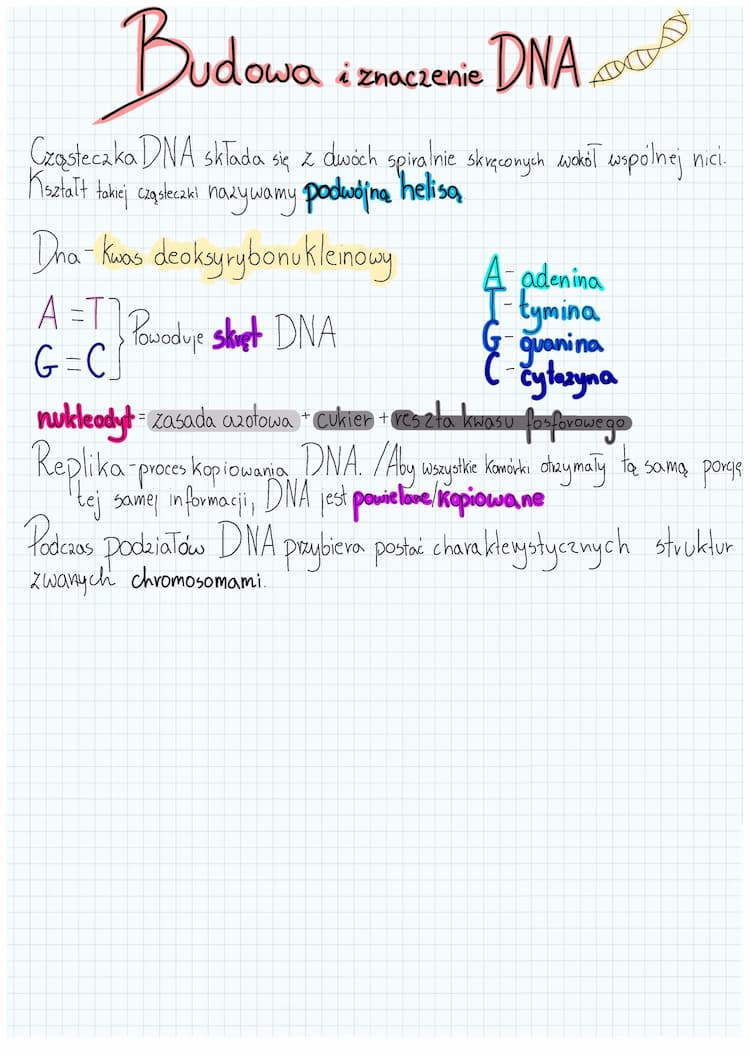 Budowa i znaczenie DNA
Cząsteczka DNA składa się z dwóch spiralnie skręconych wokół wspólnej nici.
Kształt takiej cząsteczki nazywamy podwójną helisą
Dna - kwas deoksyrybonukleinowy
A = T
G = C
Powoduje skręt DNA
A - adenina
T - tymina
G - guanina
C - cytozyna
nukleodyt = zasada azotowa + cukier + reszta kwasu fosforowego
Replika - proces kopiowania DNA. /Aby wszystkie komórki otrzymały tą samą porcję
tej samej informacji, DNA jest powielane/kopiowane
Podczas podziałów DNA przybiera postać charakterystycznych struktur
zwanych chromosomami.